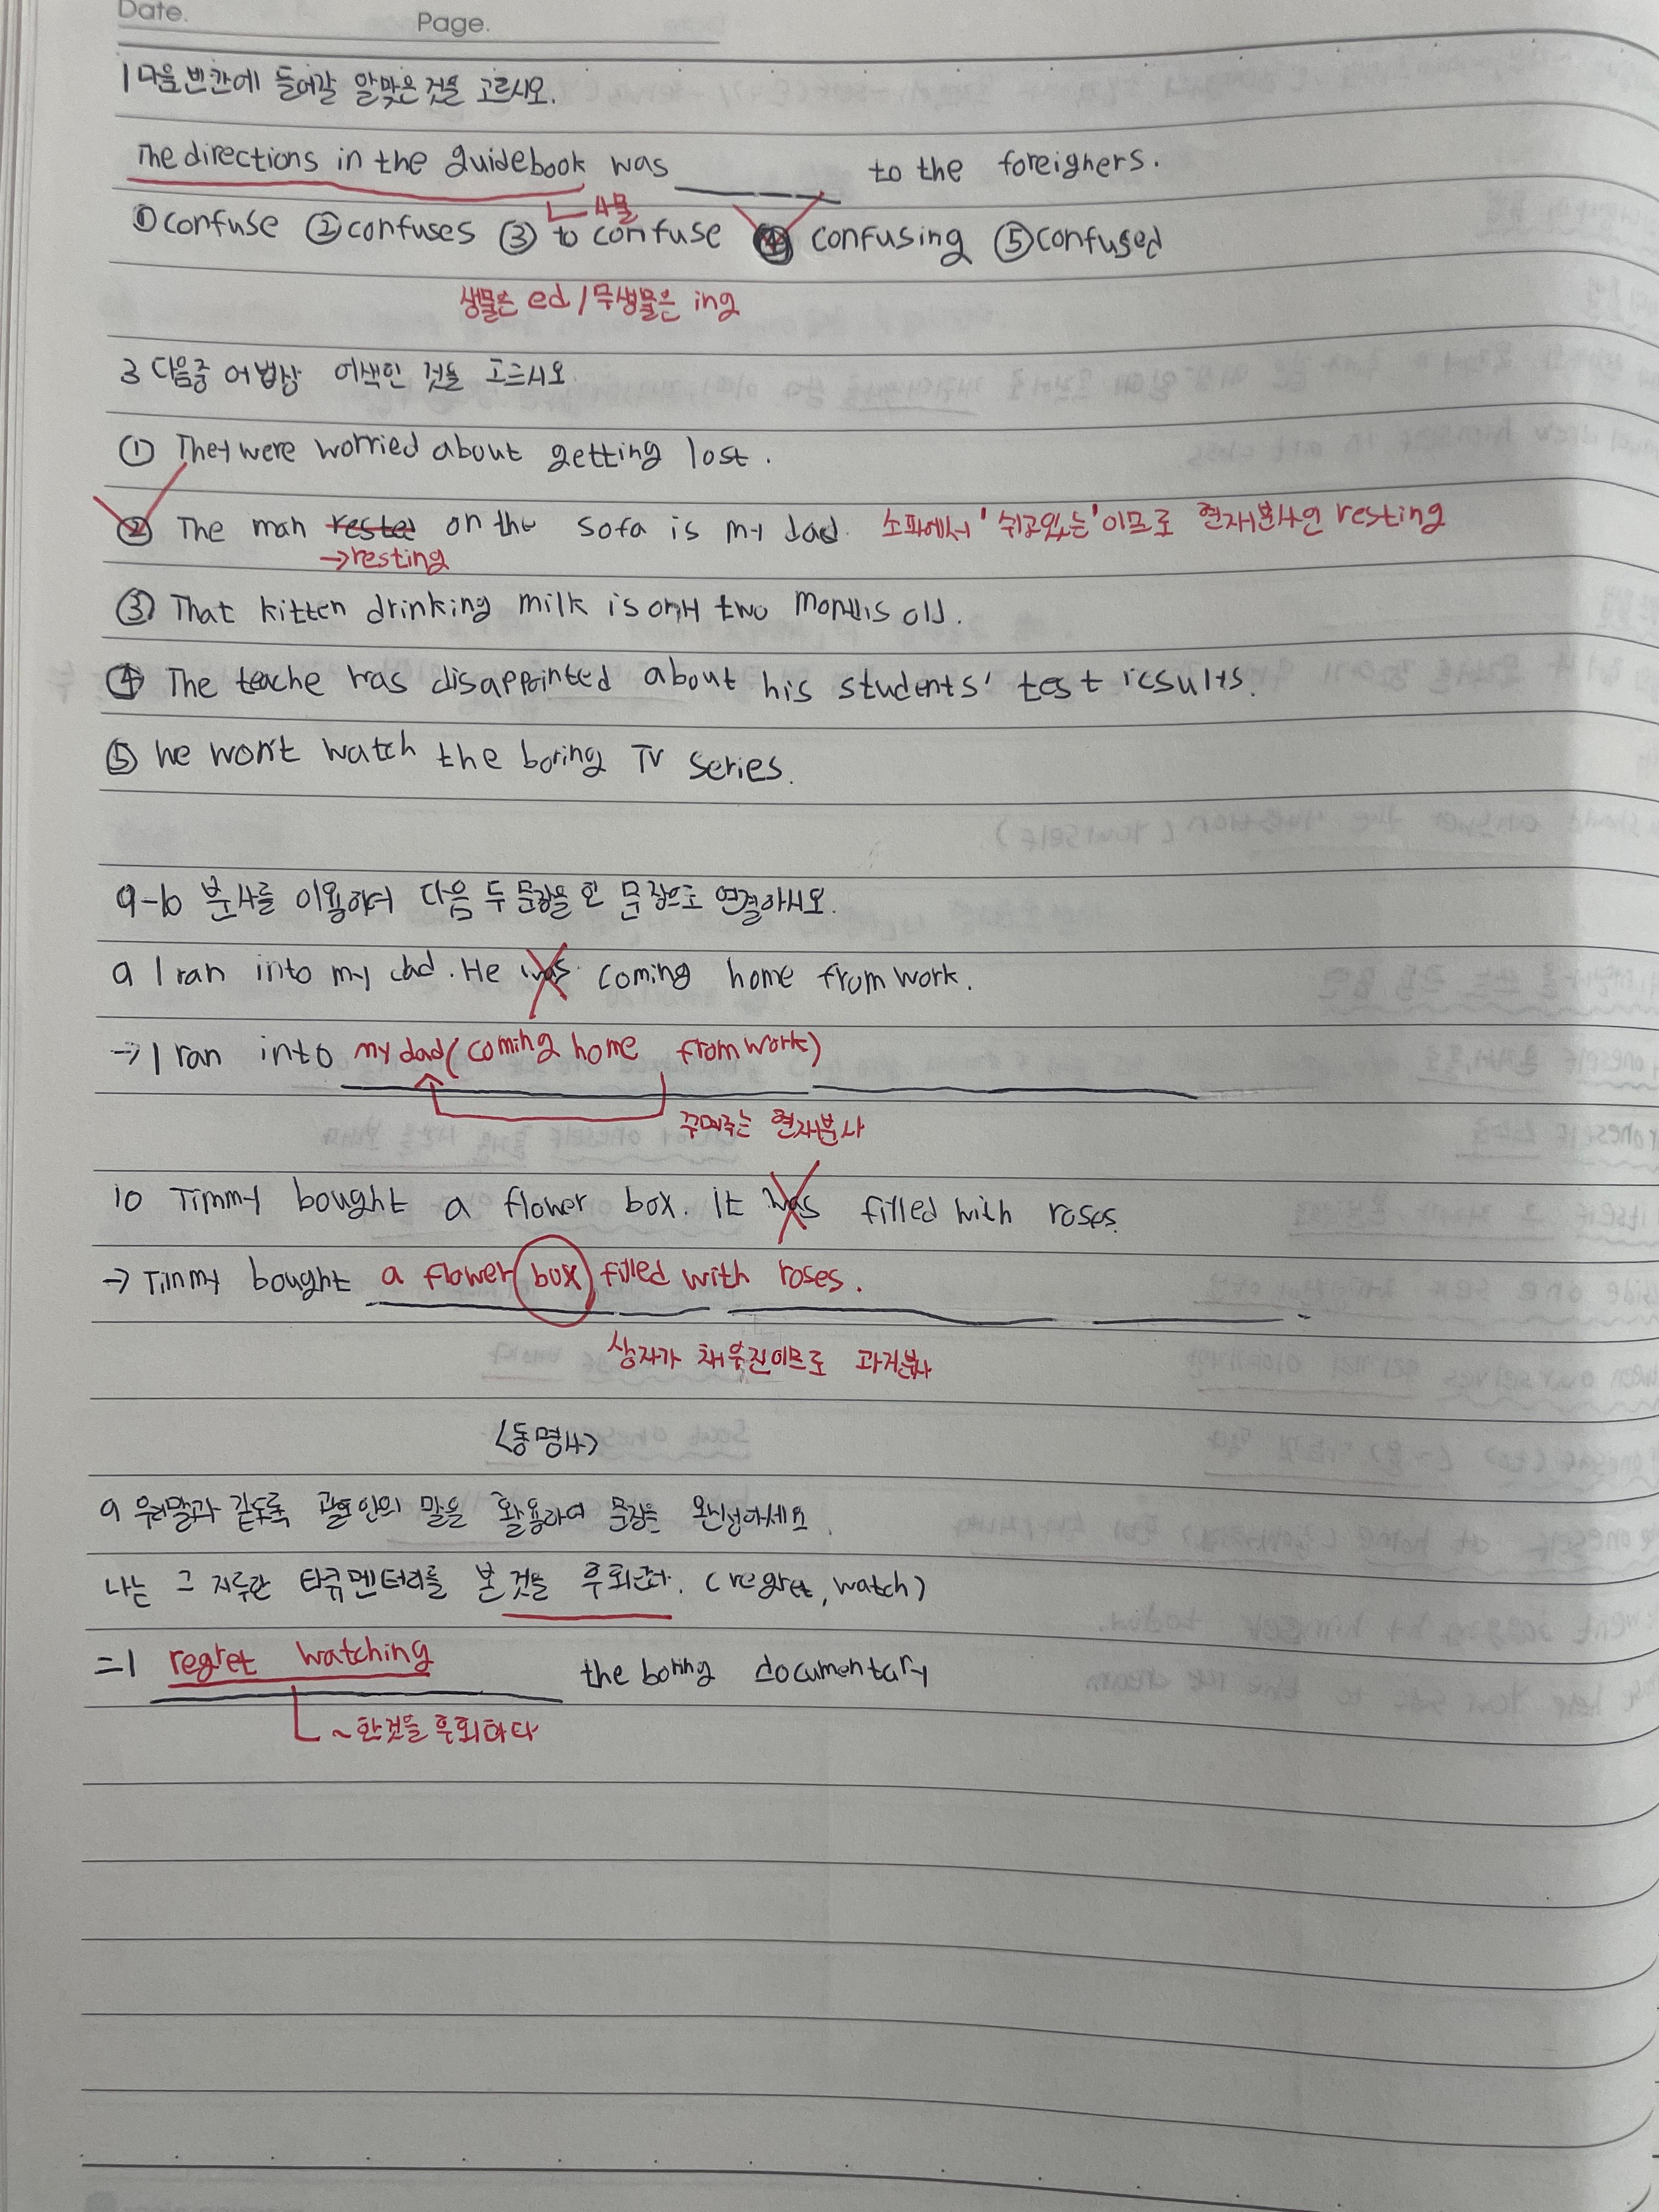 Date.
Page.
1 다음 빈칸에 들어갈 알맞은 것을 고르시오.
The directions in the guidebook was ______ to the foreigners.
사물
① confuse ② confuses ③ to confuse ④ confusing ⑤ confused
생물은 ed / 무생물은 ing
3 다음중 어법상 어색한 것을 고르시오
① They were worried about getting lost.
② The man rested on the sofa is my dad. 소파에서 '쉬고있는'이므로 현재분사인 resting
→resting
③ That kitten drinking milk is only two months old.
④ The teache was disappointed about his students' test results.
⑤ We won't watch the boring TV series.
9-10 분사를 이용하여 다음 두 문장을 한 문장으로 연결하시오.
9 I ran into my dad. He was coming home from work.
→ I ran into my dad (coming home from work)
꾸며주는 현재분사
10 Timmy bought a flower box. It was filled with roses.
→ Timmy bought a flower box filled with roses.
상자가 채워진이므로 과거분사
<동명사>
9 우리말과 같도록 괄호안의 말을 활용하여 문장을 완성하세요.
나는 그 지루한 다큐멘터리를 본 것을 후회한다. (regret, watch)
= I regret watching the boring documentary
~한것을 후회하다